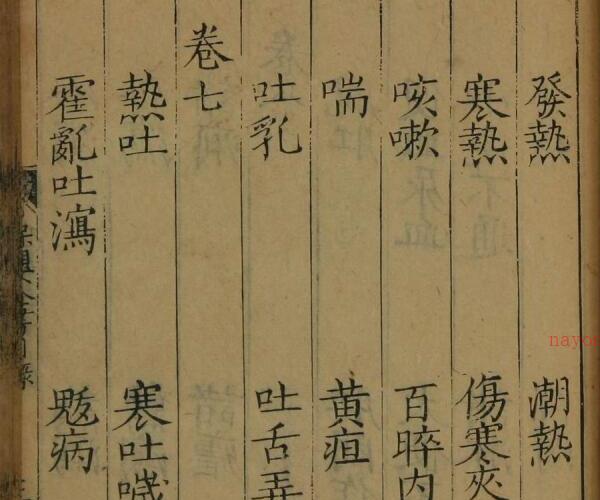 發熱 潮熱
寒熱 傷寒夾
咳嗽 百晬内
喘 黄疸
吐乳 吐舌弄
卷七
熱吐 寒吐
霍亂吐瀉 魃病
nayo